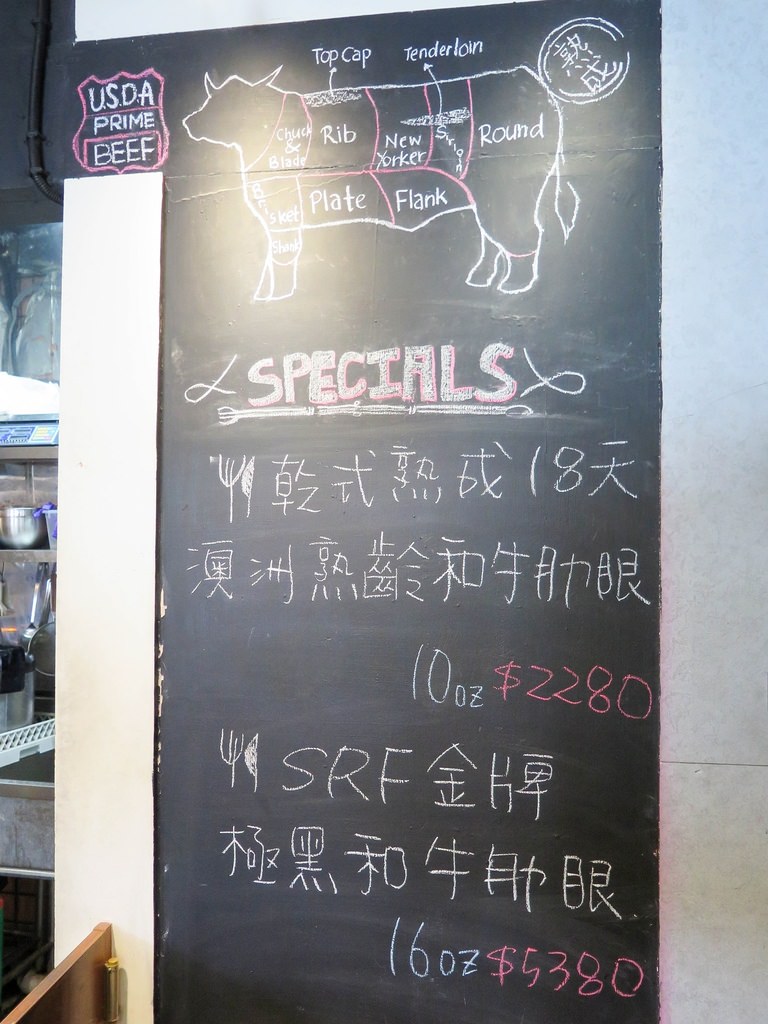 Top Cap
Tenderloin
熟成
U.S.D.A
PRIME
BEEF
Chuck
&
Blade
Rib
New
Yorker
Sirloin
Round
Brisket
Plate
Flank
Shank
SPECIALS
乾式熟成18天
澳洲熟齡和牛肋眼
10oz $2280
SRF金牌
極黑和牛肋眼
16oz $5380